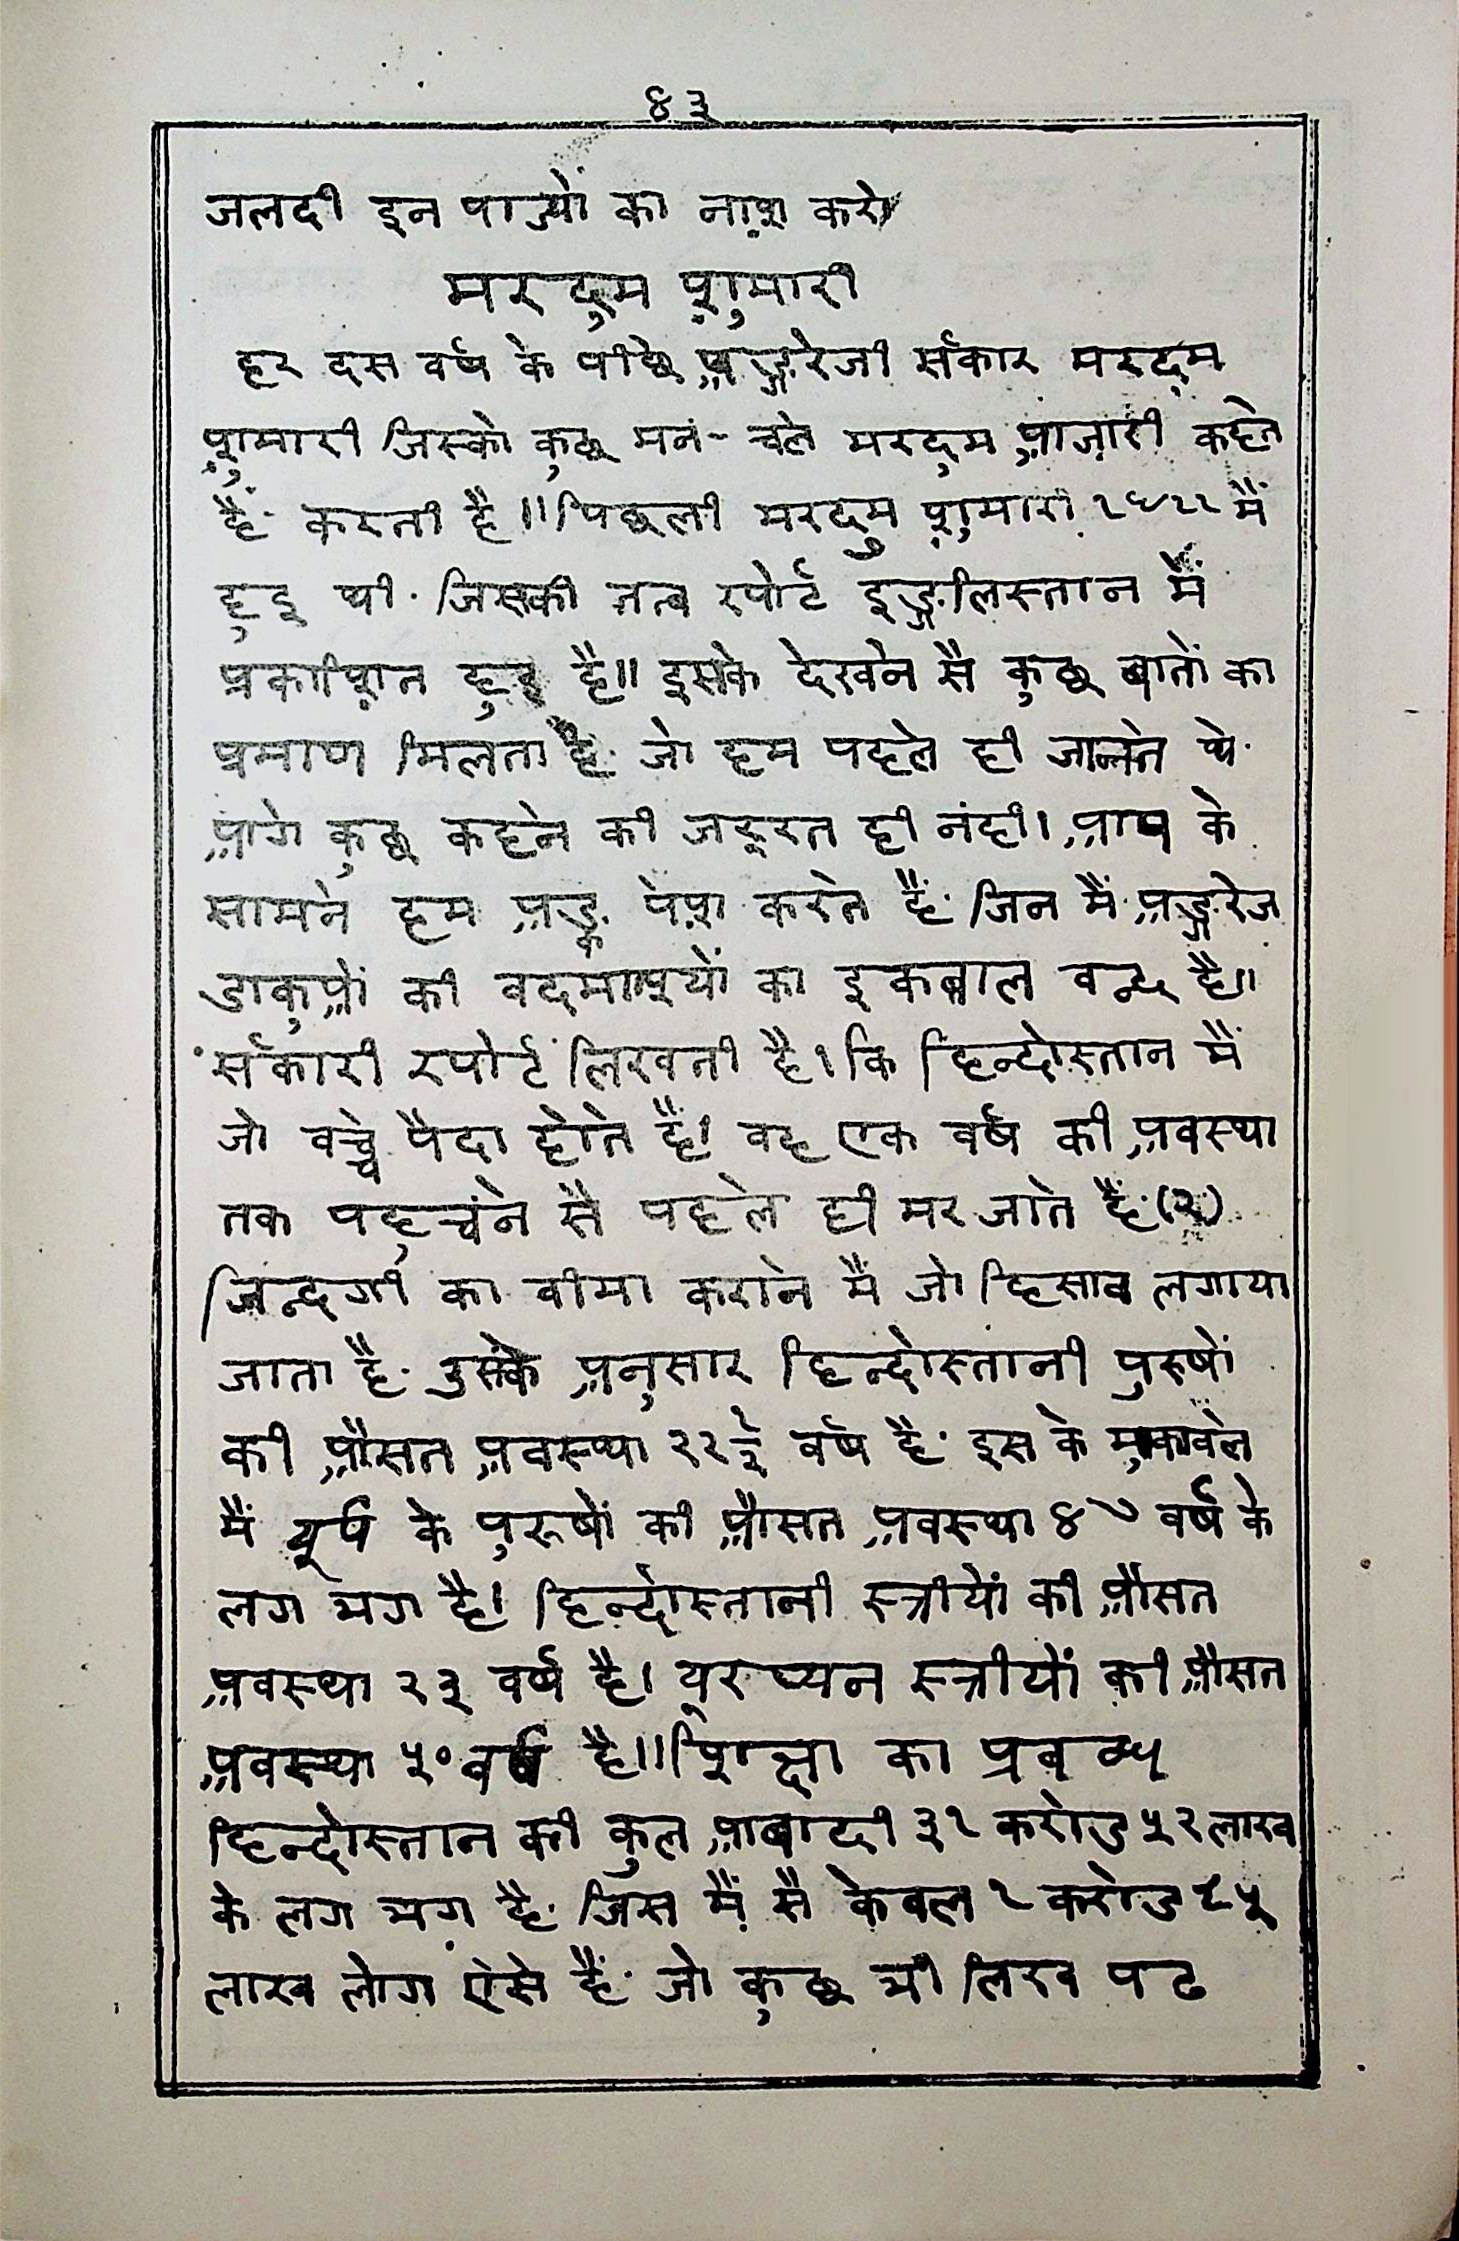 ४३
जलदी इन पाज्यों का नाश करो
मरदुम शुमारी
हर दस वर्ष के पीछे अङ्गरेजी र्सकार मरदुम
शुमारी जिस्को कुछ मन-चले मरदुम आज़ारी कहते
हैं· करती है॥ पिछली मरदुम शुमारी १९११ मैं
हुइ थी· जिसकी रपोर्ट इङ्गलिस्तान मैं
प्रकाशित हुइ है॥ इसके देखने सै कुछ बातों का
प्रमाण मिलता है· जो हम पहले ही जानते थे·
आगे कुछ कहने की जरूरत ही नंही। आप के
सामने हम अङ्क पेश करते हैं· जिन मैं अङ्गरेज
डाकुओं की वदमाशियों का इकबाल वन्द है॥
र्सकारी रपोर्ट लिखती है। कि हिन्दोस्तान मैं
जो वच्चे पैदा होते हैं। वह एक वर्ष की अवस्था
तक पहुचंने सै पहले ही मर जाते हैं·(२)
जिन्दगी का वीमा कराने मै जो हिसाव लगाया
जाता है· उसके अनुसार हिन्दोस्तानी पुरुषों
की औसत अवस्था २२ १/२ वर्ष है· इस के मुकावले
मैं यूर्प के पुरुषों की औसत अवस्था ४७ वर्ष के
लग भग है। हिन्दोस्तानी स्त्रीयों की औसत
अवस्था २३ वर्ष है। यूरप्यन स्त्रीयों की औसत
अवस्था ५० वर्ष है॥ शिक्षा का प्रबन्ध
हिन्दोस्तान की कुल आबादी ३१ करोड ५२ लाख
के लग भग है· जिस मैं सै केवल १ करोड ८५
लाख लोग ऐसे हैं· जो कुछ भी लिख पढ